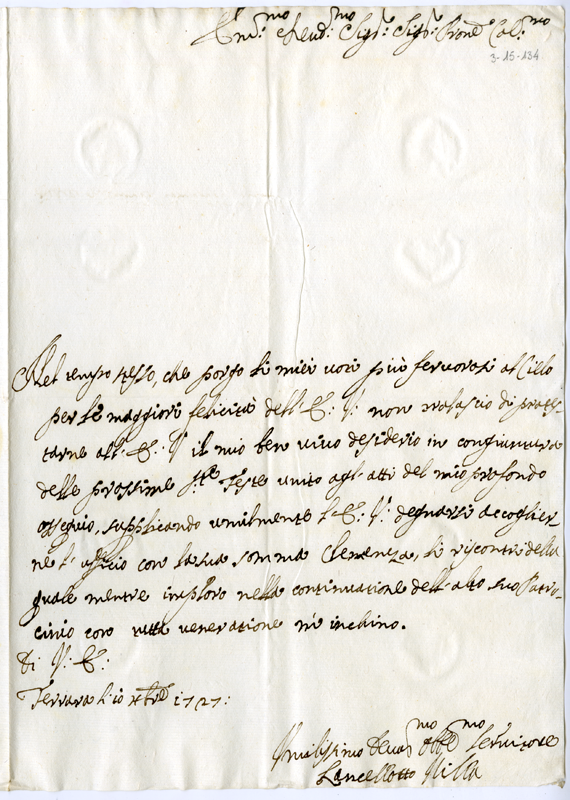 Em:mo Reud:mo Sig:r Sig:r Prone Col:mo
3-15-134
Nel tempo stesso, che porgo li miei voti più fervorosi al Cielo
per le maggiori felicità dell'E: V: non tralascio di protes-
tarne all'E: V: il mio ben vivo desiderio in congiuntura
delle prossime S:te Feste unito agl'atti del mio profondo
ossequio, supplicando umilmente l'E: V: degnarsi accoglier-
ne l'ufficio con la sua somma Clemenza, li riscontri della
quale mentre imploro nella continuatione dell'alto suo Patro-
cinio con tutta veneratione m'inchino.
Di V: E:
Ferrara li 10 Xbre 1727:
Umilissimo Deuot:mo Obb:mo Servitore
Lancellotto Villa